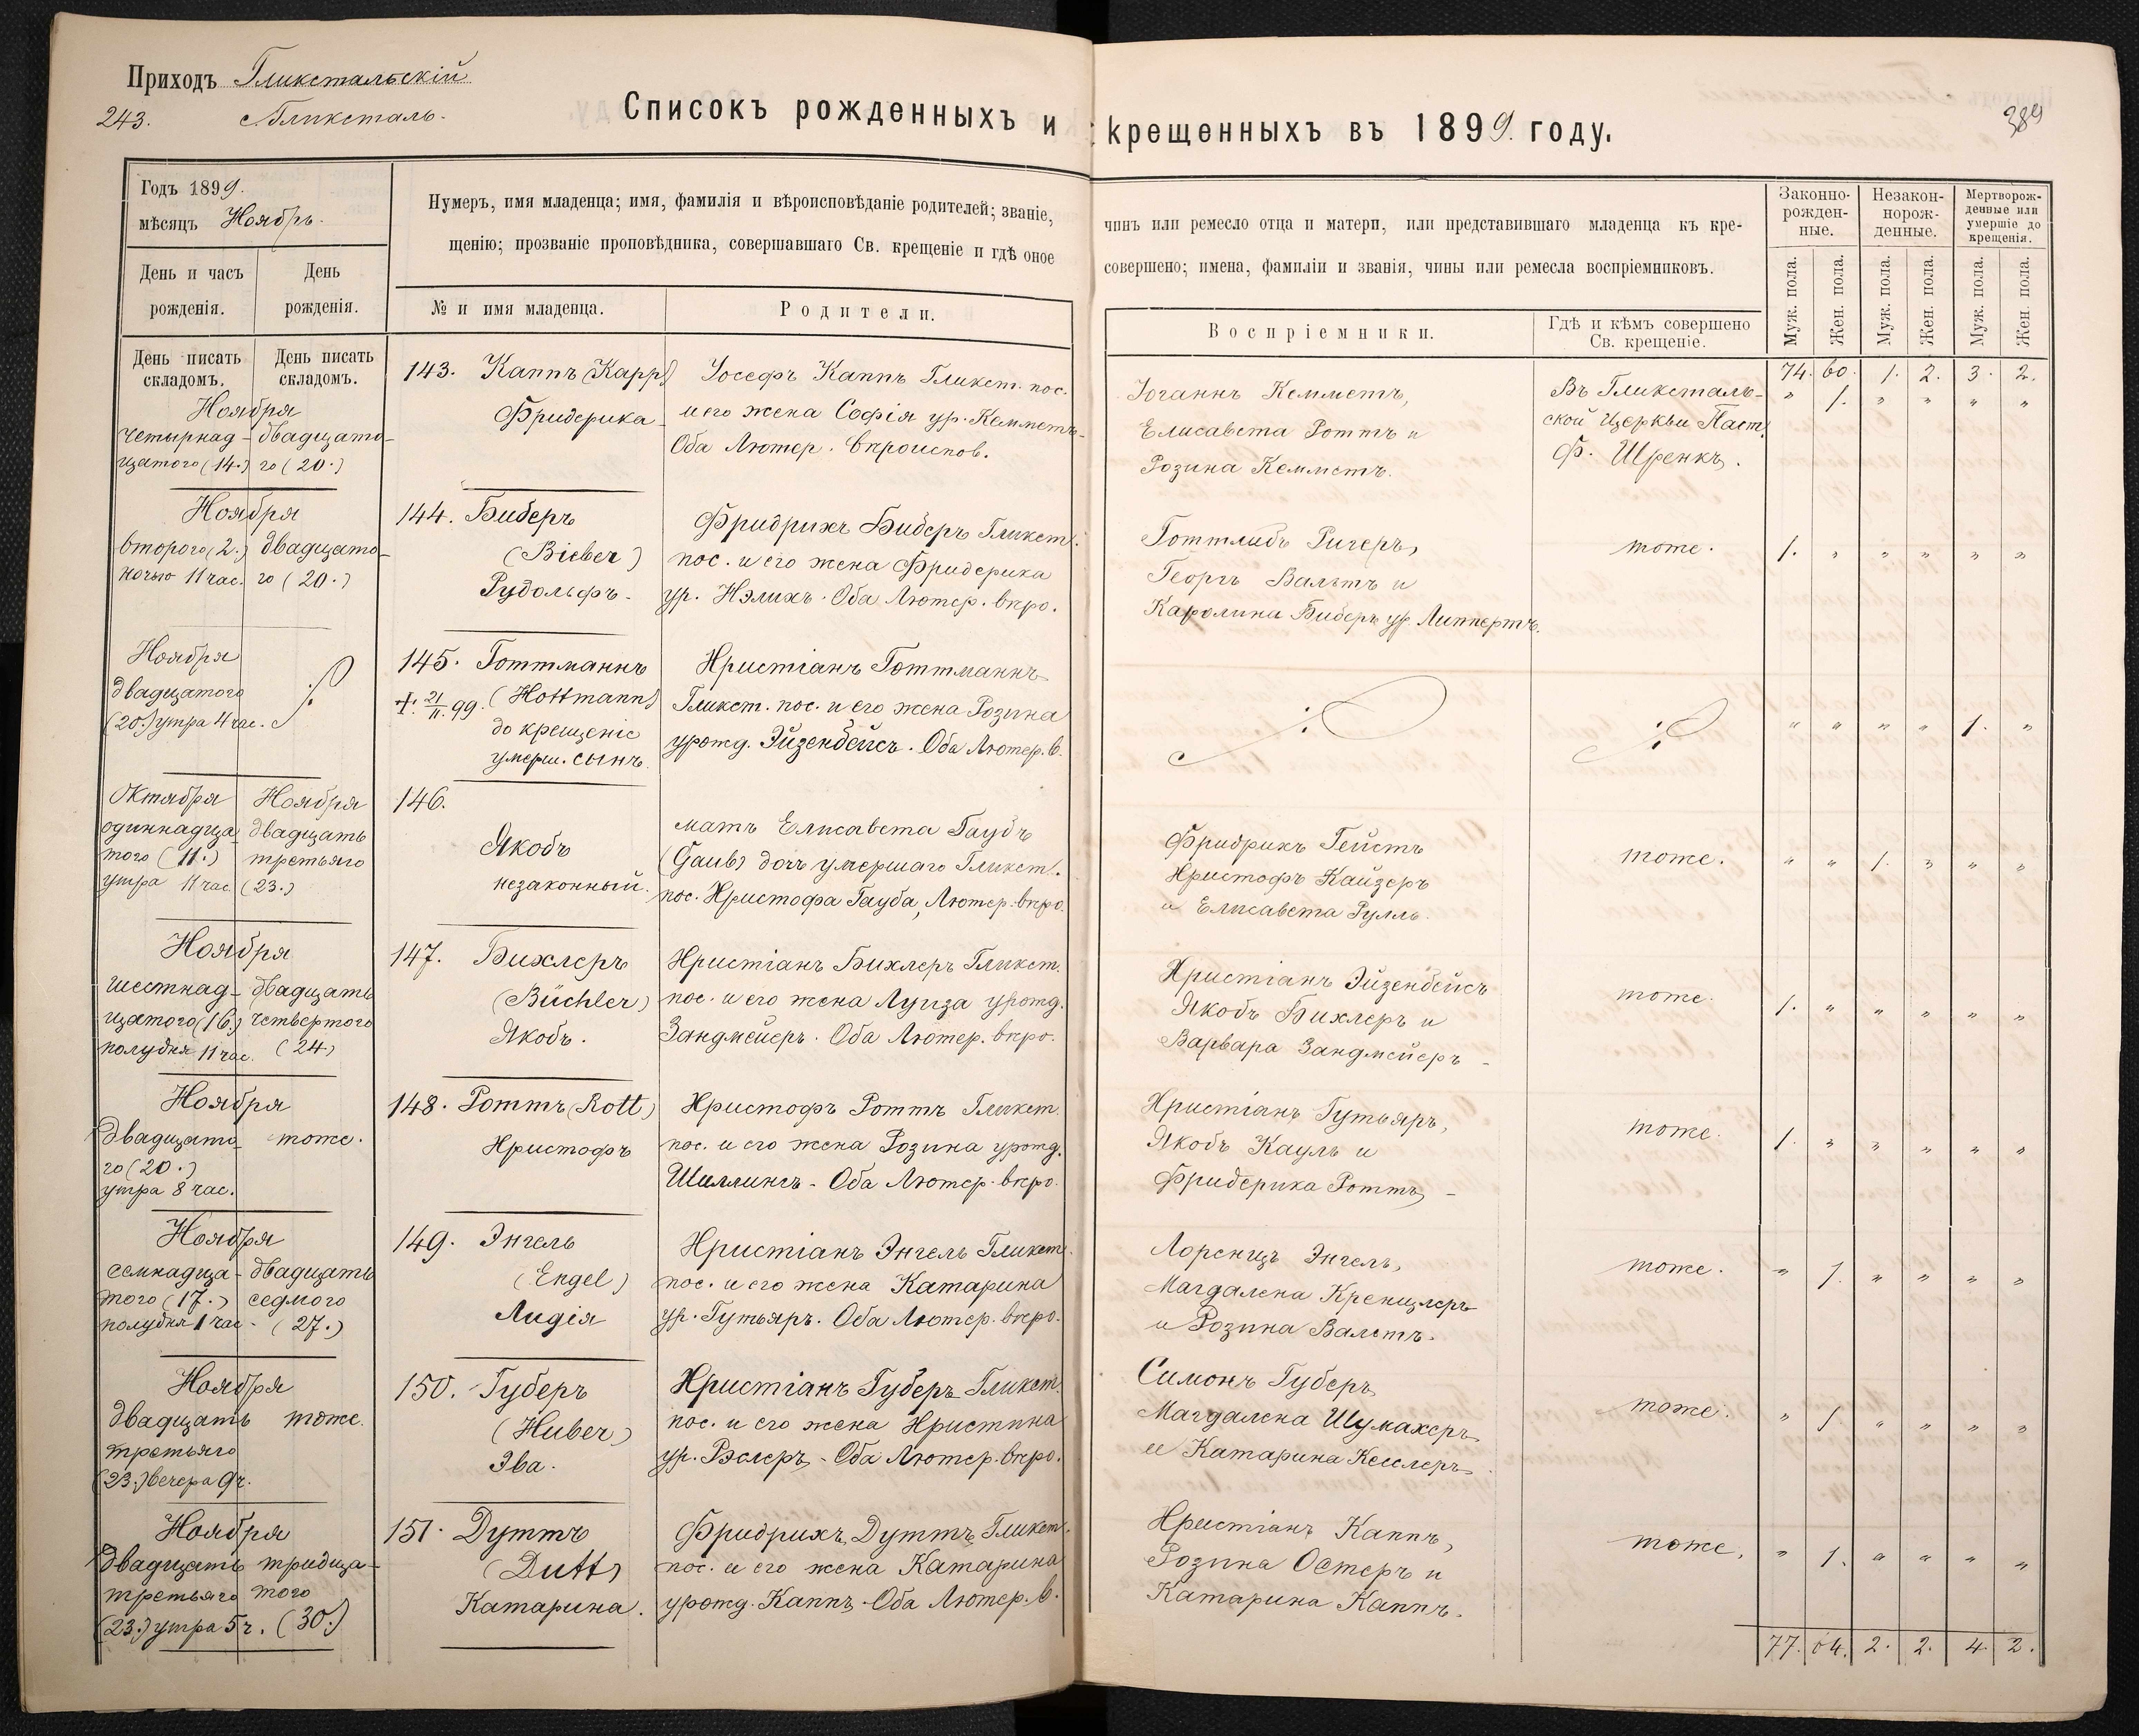 Приходъ Гликстальскій
243. Гликсталь.
Списокъ рожденныхъ и крещенныхъ въ 1899. году.
389
Годъ 1899.
мѣсяцъ Ноябрь.
День и часъ рожденія.
День рожденія.
Нумеръ, имя младенца; имя, фамилія и вѣроисповѣданіе родителей; званіе, чинъ или ремесло отца и матери, или представившаго младенца къ кре-
щенію; прозваніе проповѣдника, совершавшаго Св. крещеніе и гдѣ оное совершено; имена, фамиліи и званія, чины или ремесла воспріемниковъ.
№ и имя младенца.
Родители.
Воспріемники.
Гдѣ и кѣмъ совершено
Св. крещеніе.
Законно-
рожден-
ные.
Незакон-
норож-
денные.
Мертворож-
денные или
умершіе до
крещенія.
Муж. пола.
Жен. пола.
Муж. пола.
Жен. пола.
Муж. пола.
Жен. пола.
День писать
складомъ.
День писать
складомъ.
74. 60. 1. 2. 3. 2.
Ноября
четырнад-
цатого (14.)
двадцато-
го (20.)
143. Каппъ (Kapp)
Фридерика
Іосефъ Каппъ Гликст. пос.
и его жена Софія ур. Кемметъ-
Оба Лютер. вѣроиспов.
Іоганнъ Кемметъ,
Елисавета Роттъ и
Розина Кемметъ.
Въ Гликсталь-
ской Церкви Паст.
Ф. Шренкъ.
" 1. " " " "
Ноября
второго (2.)
ночью 11 час.
двадцато-
го (20.)
144. Биберъ
(Bieber)
Рудольфъ.
Фридрихъ Биберъ Гликст.
пос. и его жена Фридерика
ур. Нэлихъ. Оба Лютер. вѣро.
Готтлибъ Ригеръ,
Георгъ Вальтъ и
Каролина Биберъ ур. Липпертъ.
тоже.
1. " " " " "
Ноября
двадцатого
(20.) утра 4 час.
145. Готтманнъ
+. 21/11. 99. (Hottmann)
до крещеніе
умерш. сынъ.
Христіанъ Готтманнъ
Гликст. пос. и его жена Розина
урожд. Эйзенбейсъ. Оба Лютер. в.
" " " " 1. "
Октября
одиннадца-
того (11.)
утра 11 час.
Ноября
двадцать
третьяго
(23.)
146.
Якобъ
незаконный.
мать Елисавета Гаубъ
(Gaub) дочь умершаго Гликст.
пос. Христофа Гауба, Лютер. вѣро.
Фридрихъ Гейстъ
Христофъ Кайзеръ
и Елисавета Рулль.
тоже.
" " 1. " " "
Ноября
шестнад-
цатого (16.)
полудня 11 час.
двадцать
четвертого
(24.)
147. Бихлеръ
(Büchler)
Якобъ.
Христіанъ Бихлеръ Гликст.
пос. и его жена Луиза урожд.
Зандмейеръ. Оба Лютер. вѣро.
Христіанъ Эйзенбейсъ
Якобъ Бихлеръ и
Варвара Зандмейеръ
тоже.
1. " " " " "
Ноября
двадцато-
го (20.)
утра 8 час.
тоже.
148. Роттъ (Rott)
Христофъ
Христофъ Роттъ Гликст.
пос. и его жена Розина урожд.
Шиллингъ. Оба Лютер. вѣро.
Христіанъ Гутьяръ,
Якобъ Кауль и
Фридерика Роттъ
тоже.
1. " " " " "
Ноября
семнадца-
того (17.)
полудня 1 час.
двадцать
седмого
(27.)
149. Энгель
(Engel)
Лидія
Христіанъ Энгель Гликст.
пос. и его жена Катарина
ур. Гутьяръ. Оба Лютер. вѣро.
Лоренцъ Энгель,
Магдалена Кренцлеръ
и Розина Вальтъ.
тоже.
" 1. " " " "
Ноября
двадцать
третьяго
(23.) вечера 9 ч.
тоже.
150. Губеръ
(Huber)
Эва.
Христіанъ Губеръ Гликст.
пос. и его жена Христина
ур. Рэслеръ. Оба Лютер. вѣро.
Симонъ Губеръ
Магдалена Шумахеръ
и Катарина Кесслеръ
тоже.
" 1. " " " "
Ноября
двадцать
третьяго
(23.) утра 5 ч.
тридца-
того
(30.)
151. Дуттъ
(Dutt)
Катарина.
Фридрихъ Дуттъ Гликст.
пос. и его жена Катарина
урожд. Каппъ. Оба Лютер. в.
Христіанъ Каппъ,
Розина Остеръ и
Катарина Каппъ.
тоже.
" 1. " " " "
77. 64. 2. 2. 4. 2.